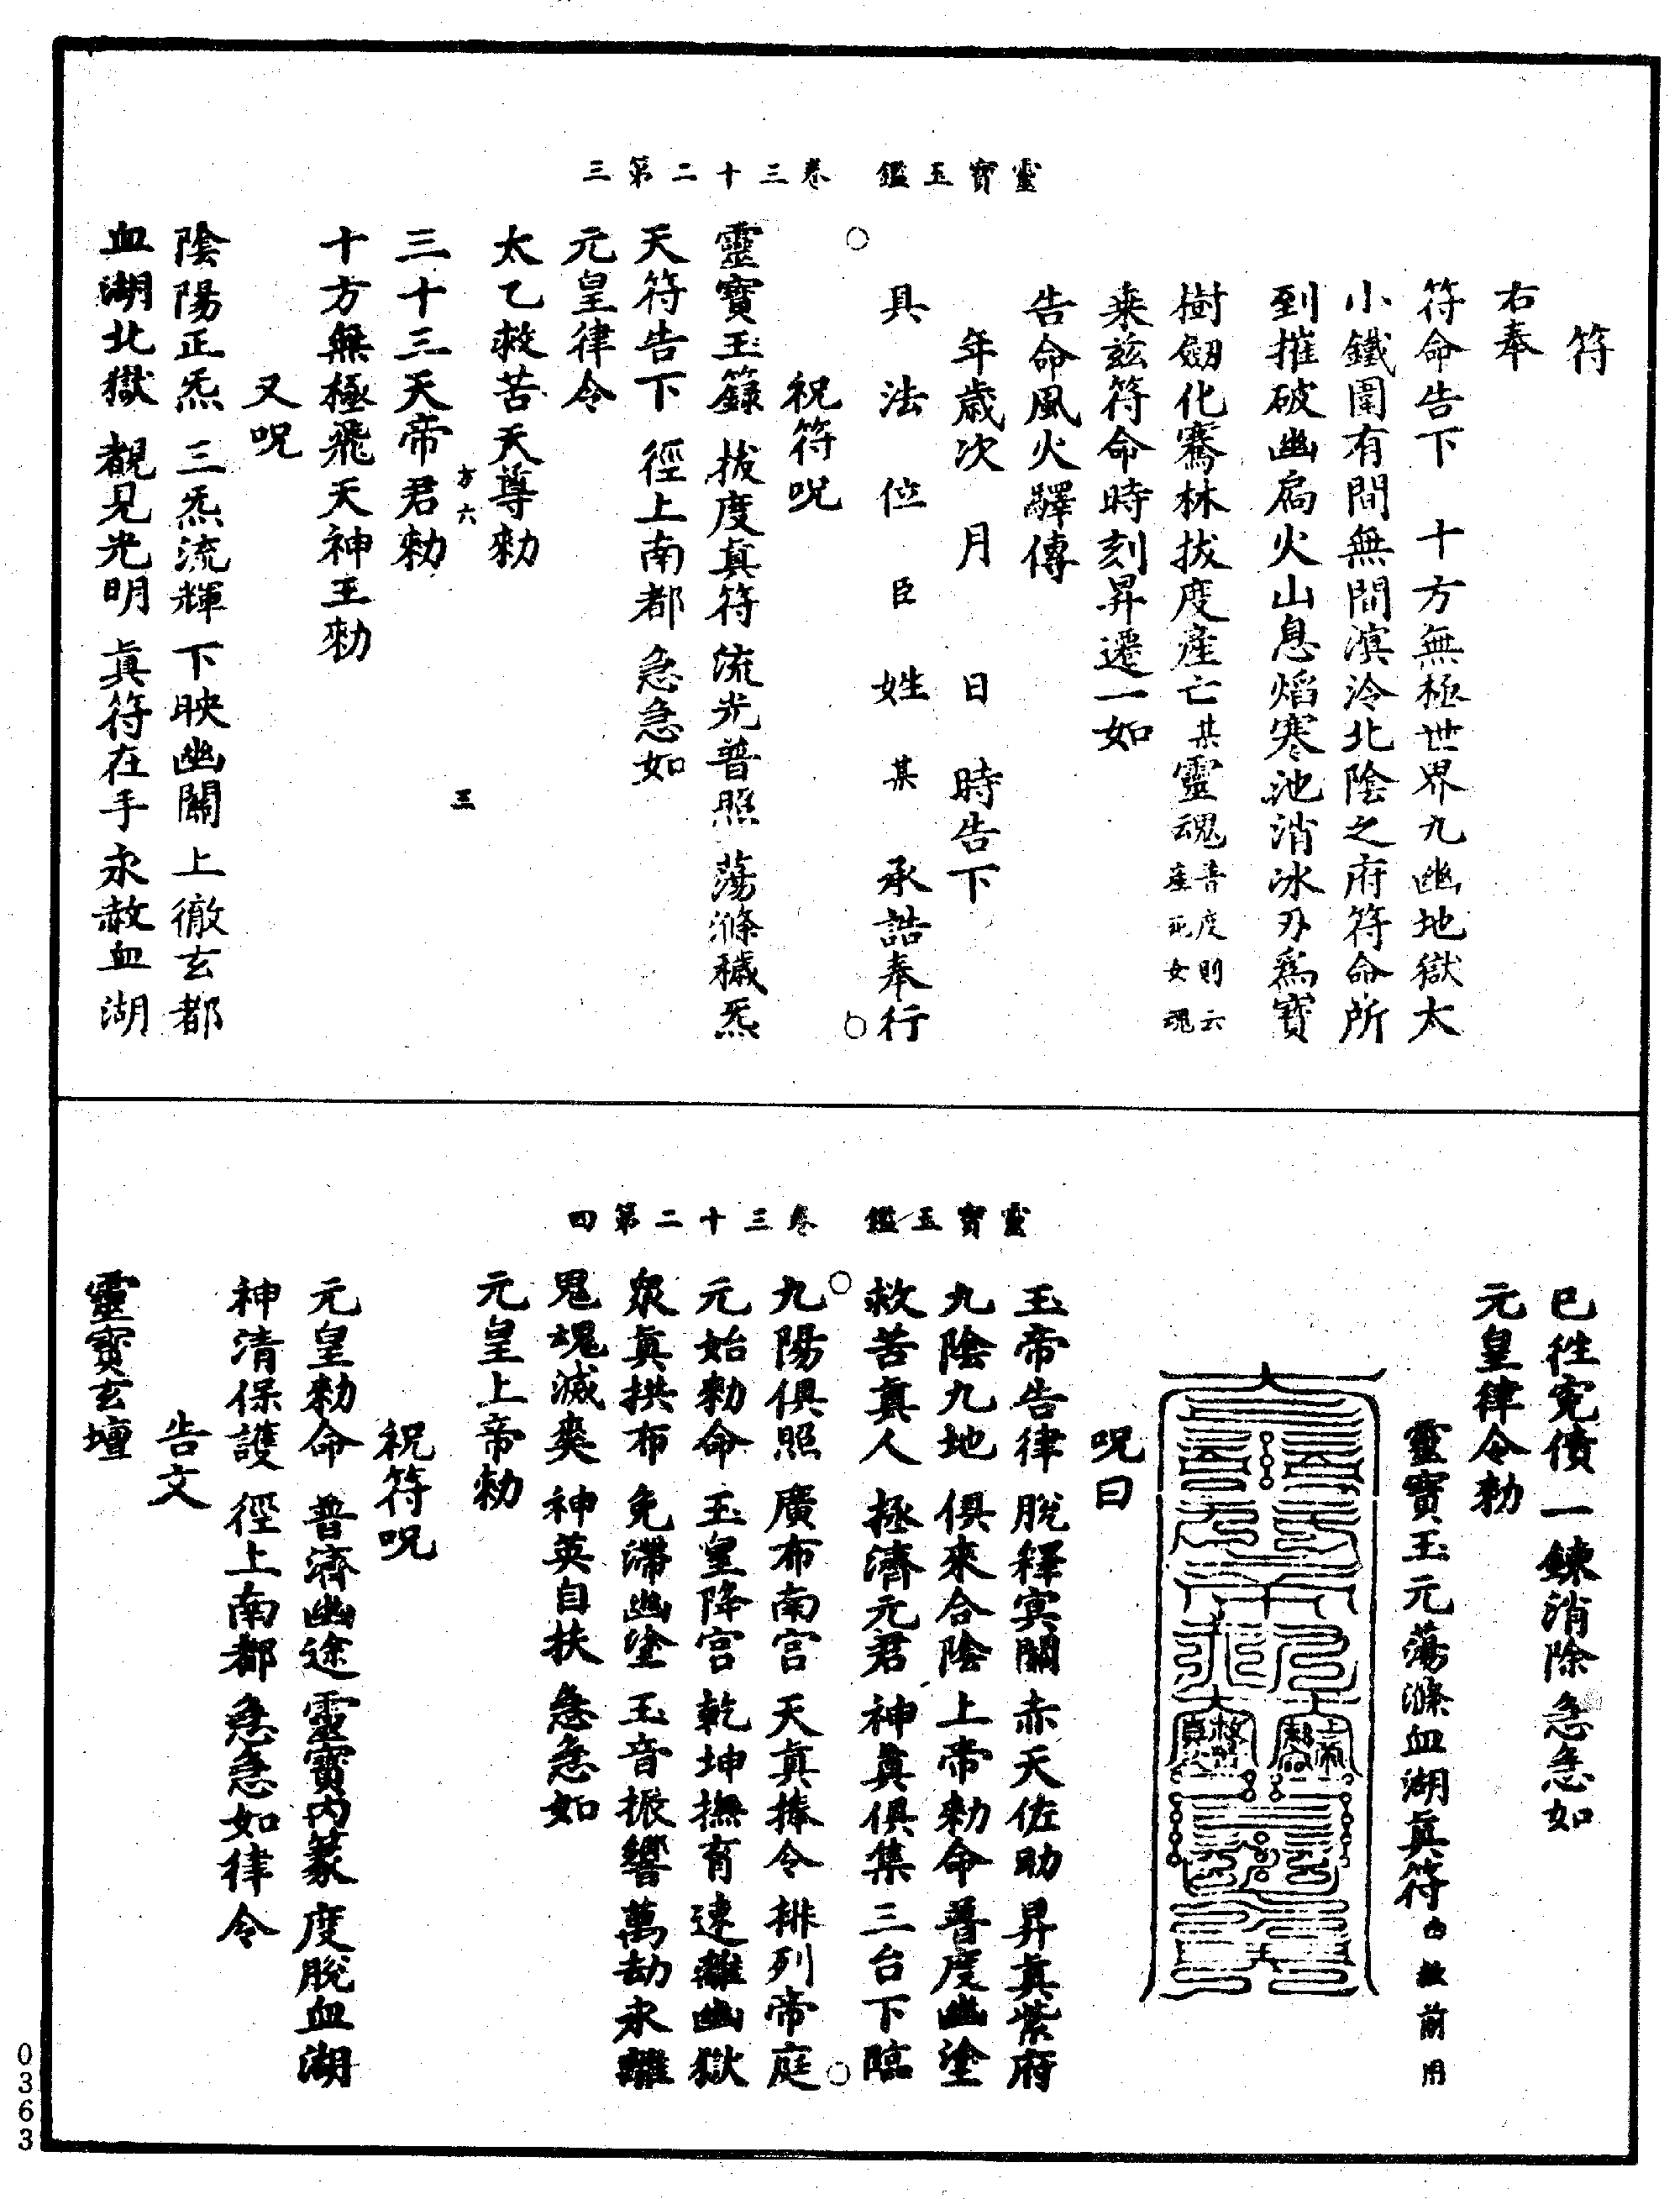 靈寶玉鑑　卷三十二第三
符
右奉
符命告下　十方無極世界九幽地獄太
小鐵圍有間無間溟泠北陰之府符命所
到摧破幽扃火山息焰寒池消冰刃爲寶
樹劒化騫林拔度產亡某靈魂普度則云產死女魂
乘茲符命時刻昇遷一如
告命風火驛傳
年歲次　月　日　時告下
具　法　位　臣　姓　某　承誥奉行
祝符呪
靈寶玉籙　拔度真符　流光普照　蕩滌穢炁
天符告下　徑上南都　急急如
元皇律令
太乙救苦天尊勑
三十三天帝君勑
方六　三
十方無極飛天神王勑
又呪
陰陽正炁　三炁流輝　下映幽關　上徹玄都
血湖北獄　覩見光明　真符在手　永赦血湖
靈寶玉鑑　卷三十二第四
已往寃債　一鍊消除　急急如
元皇律令勑
靈寶玉元蕩滌血湖真符　前用
呪曰
玉帝告律　脫釋冥關　赤天佐助　昇真紫府
九陰九地　俱來合陰　上帝勑命　普度幽塗
救苦真人　拯濟元君　神真俱集　三台下臨
九陽俱照　廣布南宮　天真捧令　排列帝庭
元始勑命　玉皇降宮　乾坤撫育　速離幽獄
衆真拱布　免滯幽塗　玉音振響　萬劫永離
鬼魂滅爽　神英自扶　急急如
元皇上帝勑
祝符呪
元皇勑命　普濟幽途　靈寶內篆　度脫血湖
神清保護　徑上南都　急急如律令
告文
靈寶玄壇
0363